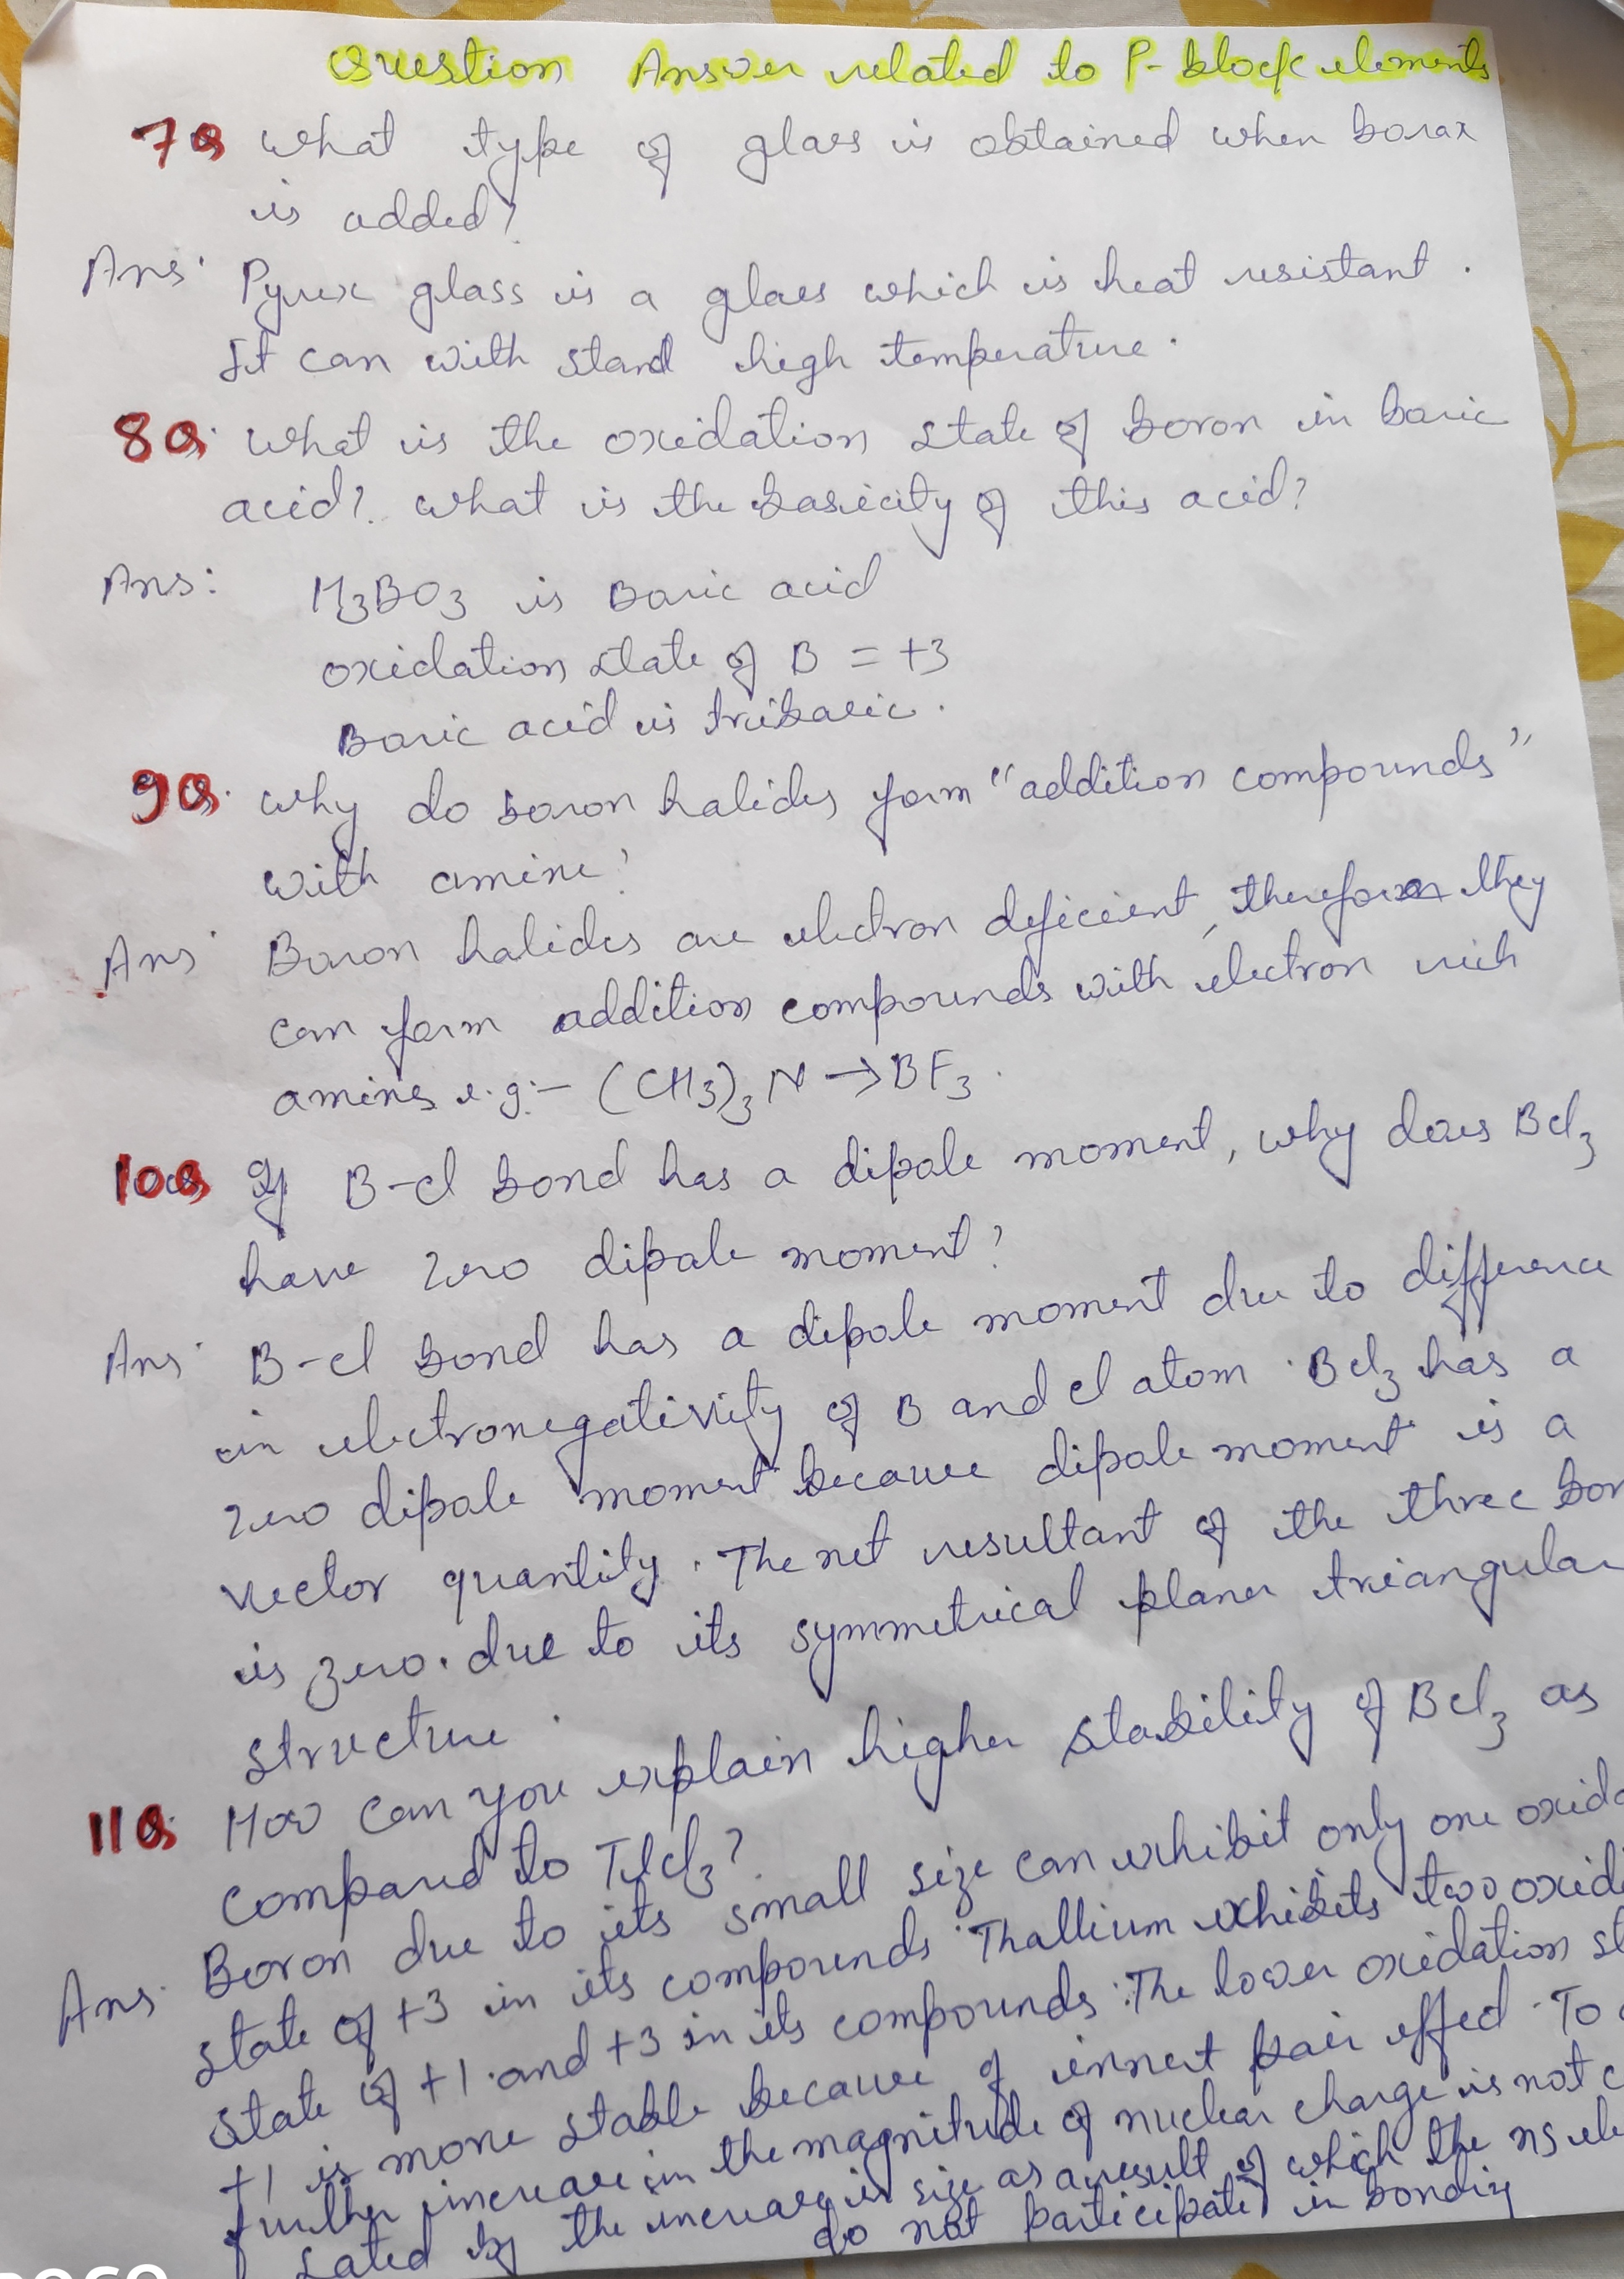 Question Answer related to P-block elements
7Q What type of glass is obtained when borax
is added?
Ans: Pyrex glass is a glass which is heat resistant.
It can with stand high temperature.
8Q. What is the oxidation state of boron in boric
acid? What is the basicity of this acid?
Ans: H3BO3 is Boric acid
oxidation state of B = +3
Boric acid is tribasic.
9Q. Why do boron halides form "addition compounds"
with amine?
Ans: Boron halides are electron deficient, therefore they
can form addition compounds with electron rich
amines e.g:- (CH3)3 N → BF3.
10Q If B-Cl bond has a dipole moment, why does BCl3
have zero dipole moment?
Ans: B-Cl bond has a dipole moment due to difference
in electronegativity of B and Cl atom. BCl3 has a
zero dipole moment because dipole moment is a
vector quantity. The net resultant of the three bon
is zero. due to its symmetrical planer triangular
structure.
11Q. How can you explain higher stability of BCl3 as
compared to TlCl3?
Ans. Boron due to its small size can exhibit only one oxida
state of +3 in its compounds. Thallium exhibits two oxid
state of +1 and +3 in its compounds. The lower oxidation st
+1 is more stable because of innert pair effect. To
further increase in the magnitude of nuclear charge is not c
sated by the increase in size as a result of which the ns ele
do not participate in bonding